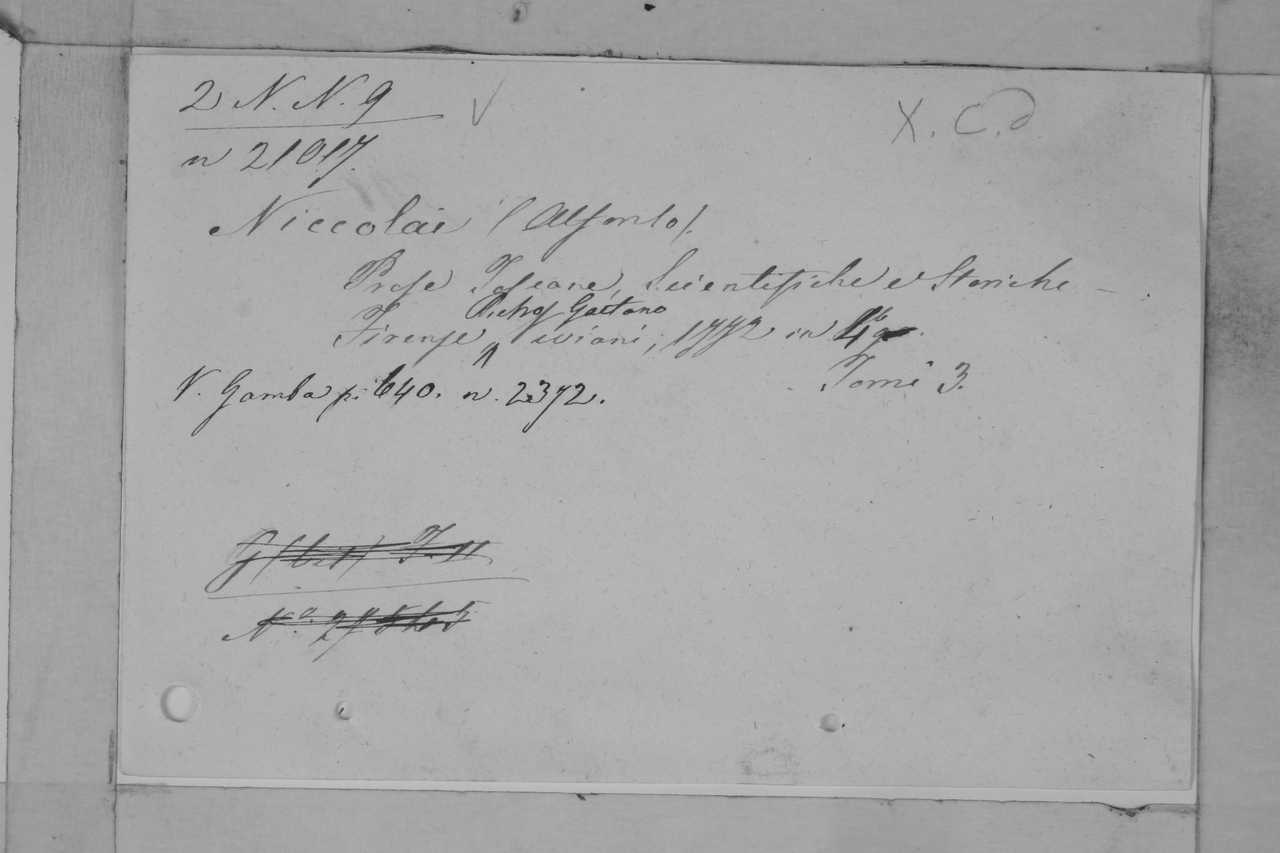 2 N. N. 9
X. C. d
n 21017.
Niccolai (Alfonso).
Prose Toscane, Scientifiche e Storiche
Pietro Gaetano
Firenze Viviani, 1772 in 4º.
Tomi 3.
V. Gamba p. 640. n. 2372.